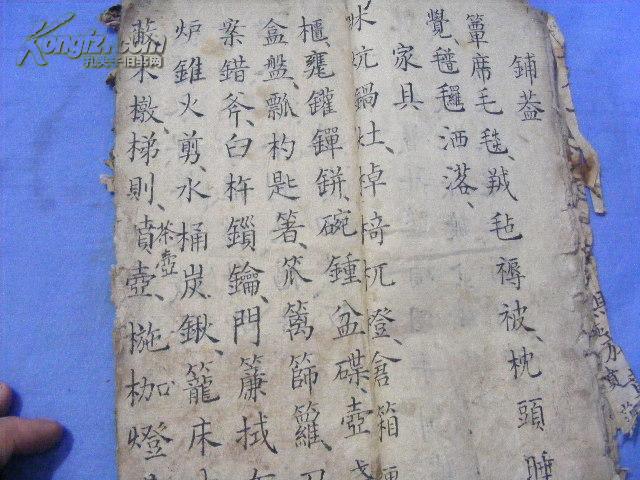 鋪蓋
簟席毛毯、羢毡褥被、枕頭睡
覺氆氌洒落、
家具
炕鍋灶、棹椅杌凳、倉箱
櫃、甕鑵鏵鉼、碗鍾盆碟壺
盒盤、瓢杓匙箸、笊篱篩籮
案錯斧、臼杵鎖鑰、門簾拭
炉錐火剪、水桶炭鍬、籠床
木墩、梯則、噴壺、枷燈
茶壺
Kongfz.com
孔夫子旧书网